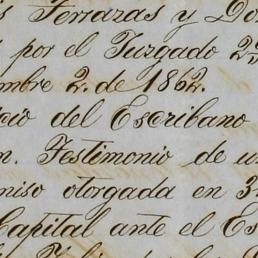 Terrazas y Do
por el Juzgado 2º
mbre 2. de 1862.
cio del Escribano
n. Testimonio de u
miso otorgada en 3
Capital ante el Es